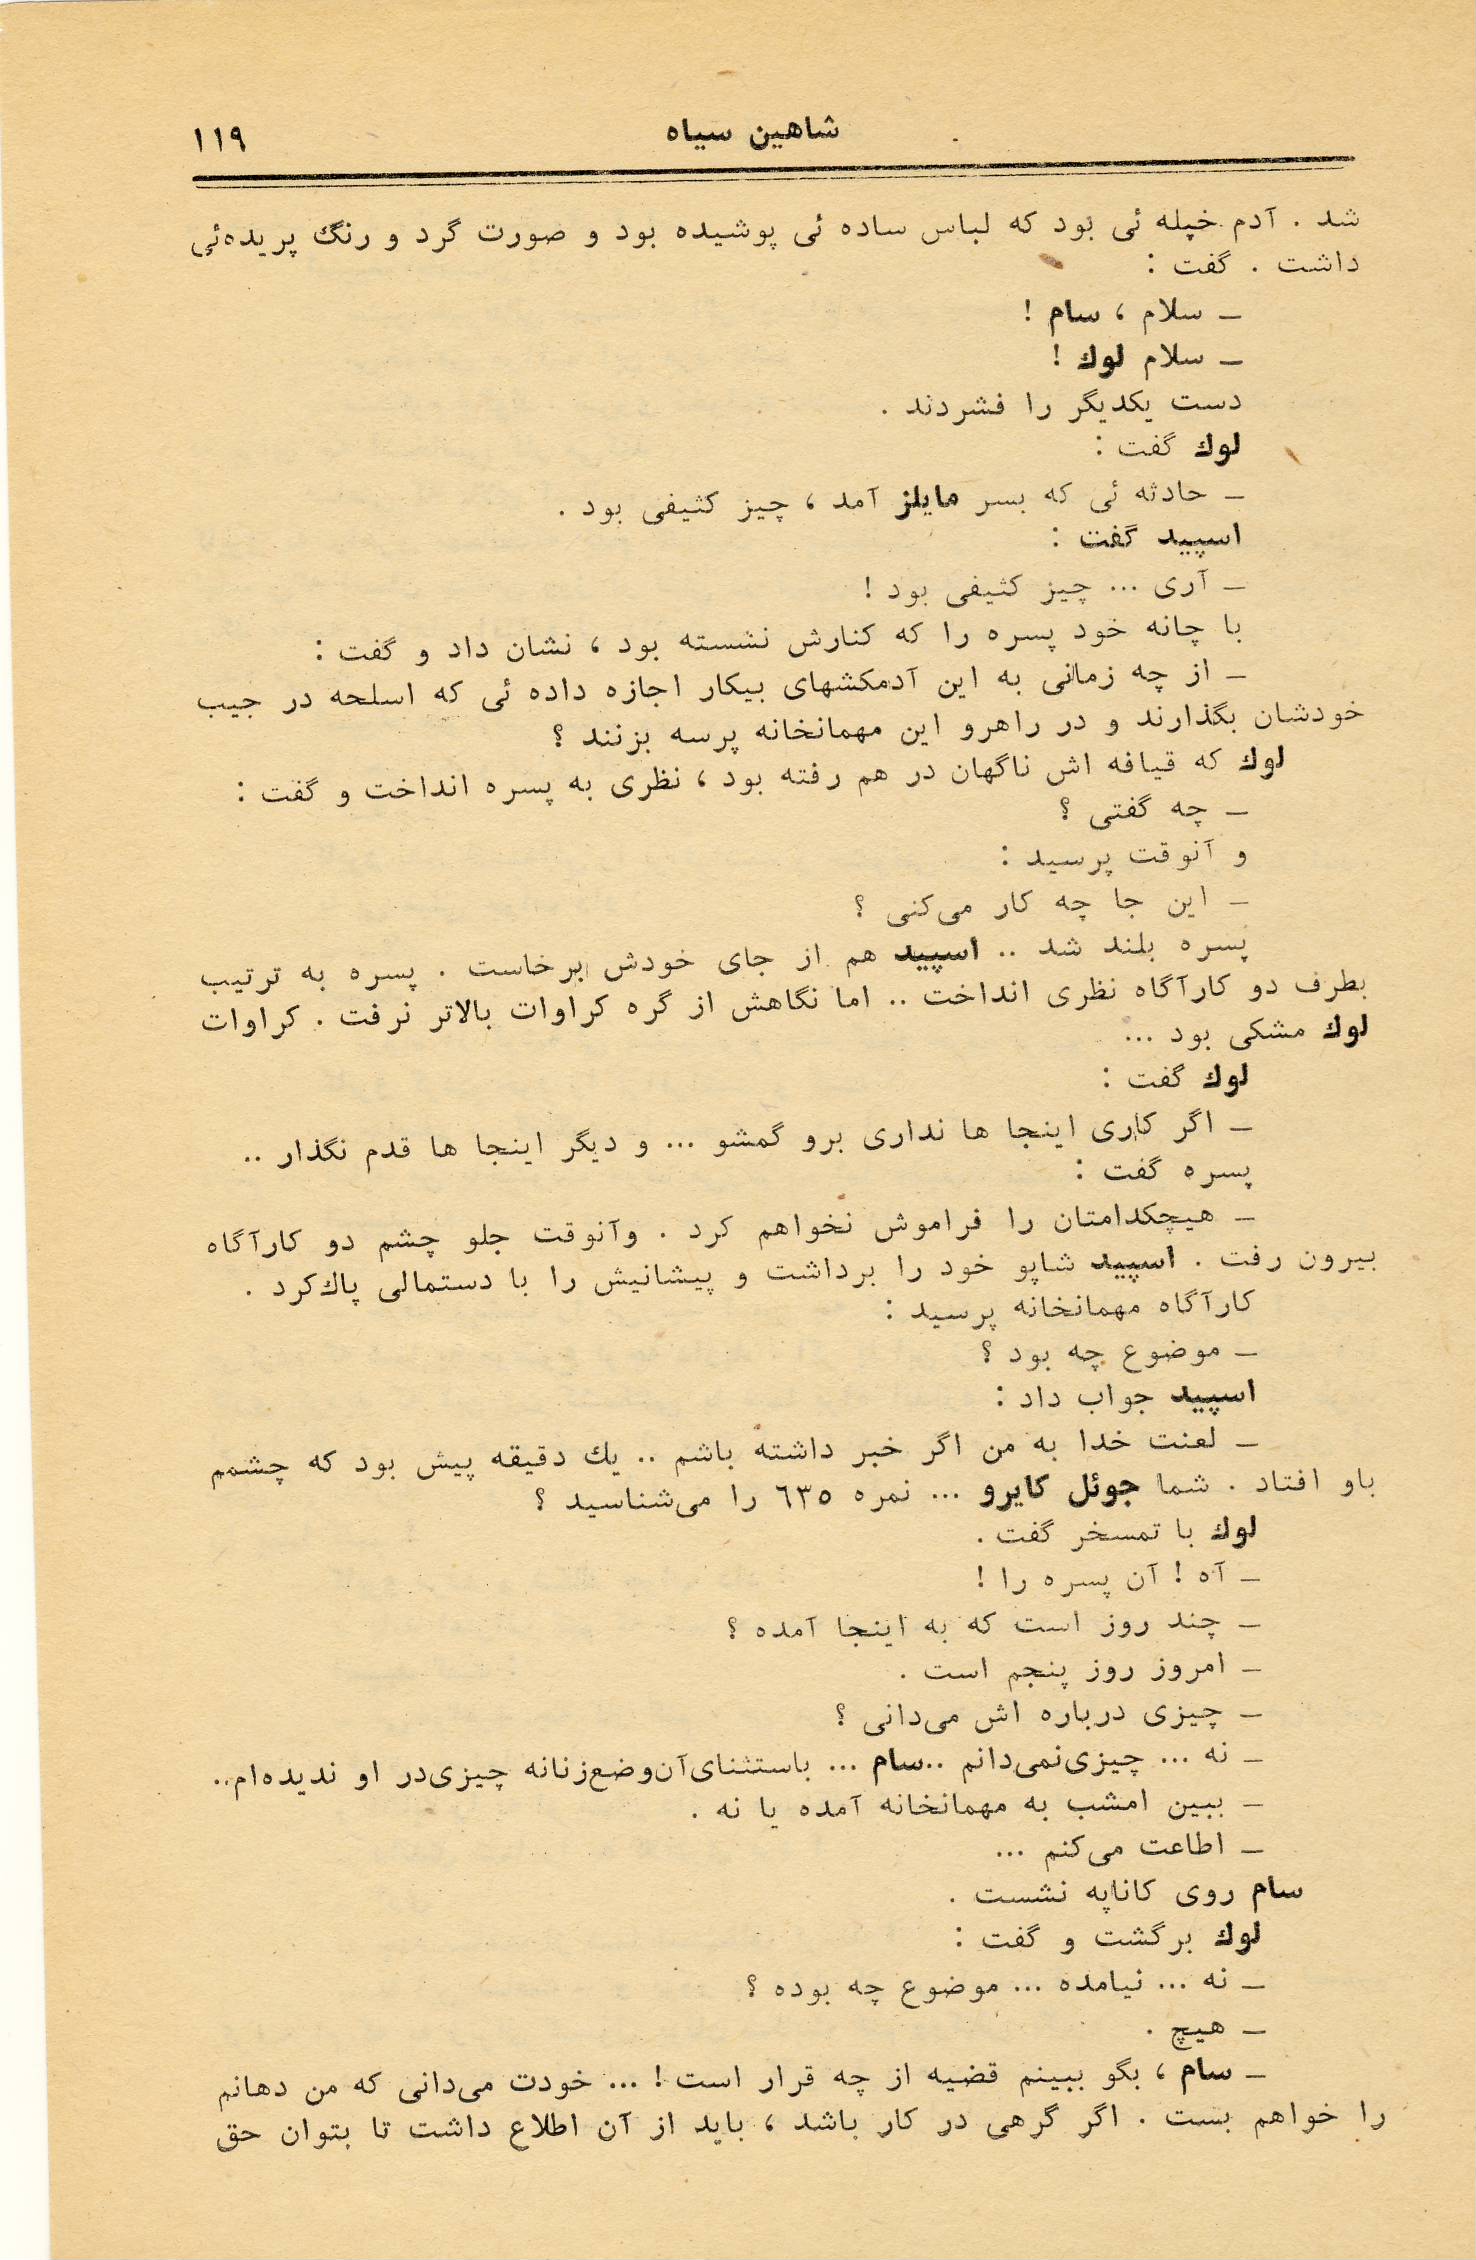 شاهین سیاه
۱۱۹
شد . آدم خپله ئی بود که لباس ساده ئی پوشیده بود و صورت گرد و رنگ پریده‌ئی
داشت . گفت :
ـ سلام ، سام !
ـ سلام لوك !
دست یکدیگر را فشردند .
لوك گفت :
ـ حادثه ئی که بسر مایلز آمد ، چیز کثیفی بود .
اسپید گفت :
ـ آری ... چیز کثیفی بود !
با چانه خود پسره را که کنارش نشسته بود ، نشان داد و گفت :
ـ از چه زمانی به این آدمکشهای بیکار اجازه داده ئی که اسلحه در جیب
خودشان بگذارند و در راهرو این مهمانخانه پرسه بزنند ؟
لوك که قیافه اش ناگهان در هم رفته بود ، نظری به پسره انداخت و گفت :
ـ چه گفتی ؟
و آنوقت پرسید :
ـ این جا چه کار می‌کنی ؟
پسره بلند شد .. اسپید هم از جای خودش برخاست . پسره به ترتیب
بطرف دو کارآگاه نظری انداخت .. اما نگاهش از گره کراوات بالاتر نرفت . کراوات
لوك مشکی بود ...
لوك گفت :
ـ اگر کاری اینجا ها نداری برو گمشو ... و دیگر اینجا ها قدم نگذار ..
پسره گفت :
ـ هیچکدامتان را فراموش نخواهم کرد . وآنوقت جلو چشم دو کارآگاه
بیرون رفت . اسپید شاپو خود را برداشت و پیشانیش را با دستمالی پاك‌کرد .
کارآگاه مهمانخانه پرسید :
ـ موضوع چه بود ؟
اسپید جواب داد :
ـ لعنت خدا به من اگر خبر داشته باشم .. یك دقیقه پیش بود که چشمم
باو افتاد . شما جوئل کایرو ... نمره ٦٣٥ را می‌شناسید ؟
لوك با تمسخر گفت .
ـ آه ! آن پسره را !
ـ چند روز است که به اینجا آمده ؟
ـ امروز روز پنجم است .
ـ چیزی درباره اش می‌دانی ؟
ـ نه ... چیزی‌نمی‌دانم ..سام ... باستثنای‌آن‌وضع‌زنانه چیزی‌در او ندیده‌ام..
ـ ببین امشب به مهمانخانه آمده یا نه .
ـ اطاعت می‌کنم ...
سام روی کاناپه نشست .
لوك برگشت و گفت :
ـ نه ... نیامده ... موضوع چه بوده ؟
ـ هیچ .
ـ سام ، بگو ببینم قضیه از چه قرار است ! ... خودت می‌دانی که من دهانم
را خواهم بست . اگر گرهی در کار باشد ، باید از آن اطلاع داشت تا بتوان حق